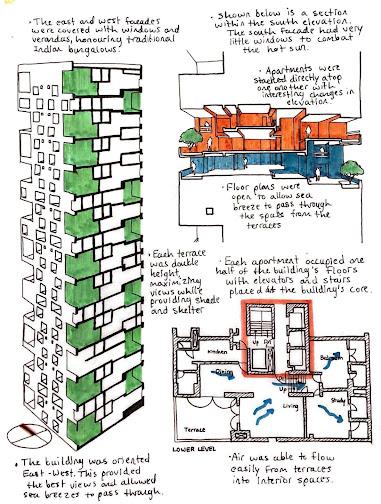 • The east and west facades
were covered with windows and
verandas, honouring traditional
Indian bungalows.
• Shown below is a section
within the south elevation.
The south facade had very
little windows to combat
the hot sun.
• Apartments were
stacked directly atop
one another with
interesting changes in
elevation.
• Floor plans were
open to allow sea
breeze to pass through
the space from the
terraces
• Each terrace
was double
height,
maximizing
views while
providing shade
and shelter
• Each apartment occupied one
half of the building's floors
with elevators and stairs
placed at the building's core.
Up Dn
Kitchen
Dining
Bedroom
Up
Living
Study
Terrace
LOWER LEVEL
• The building was oriented
East-West. This provided
the best views and allowed
sea breezes to pass through.
• Air was able to flow
easily from terraces
into interior spaces.